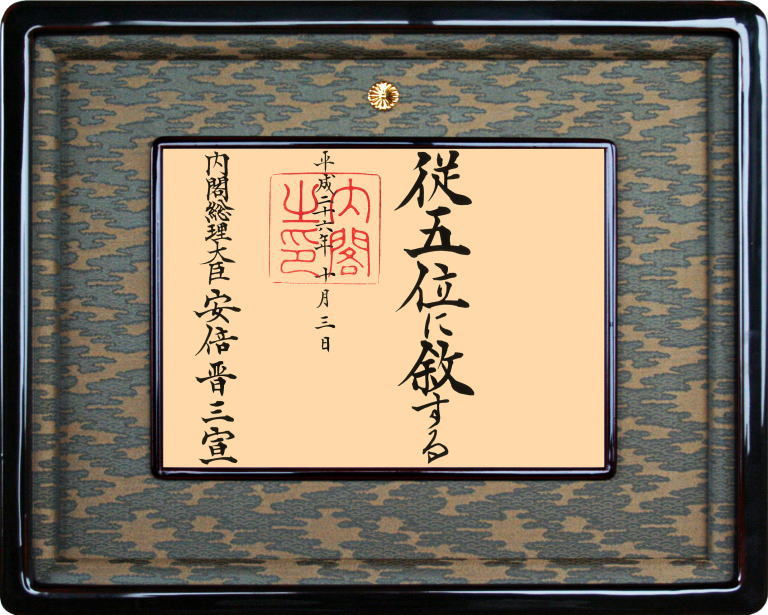 従五位に敘する
平成二十六年十月三日
内閣之印
内閣総理大臣 安倍晋三宣